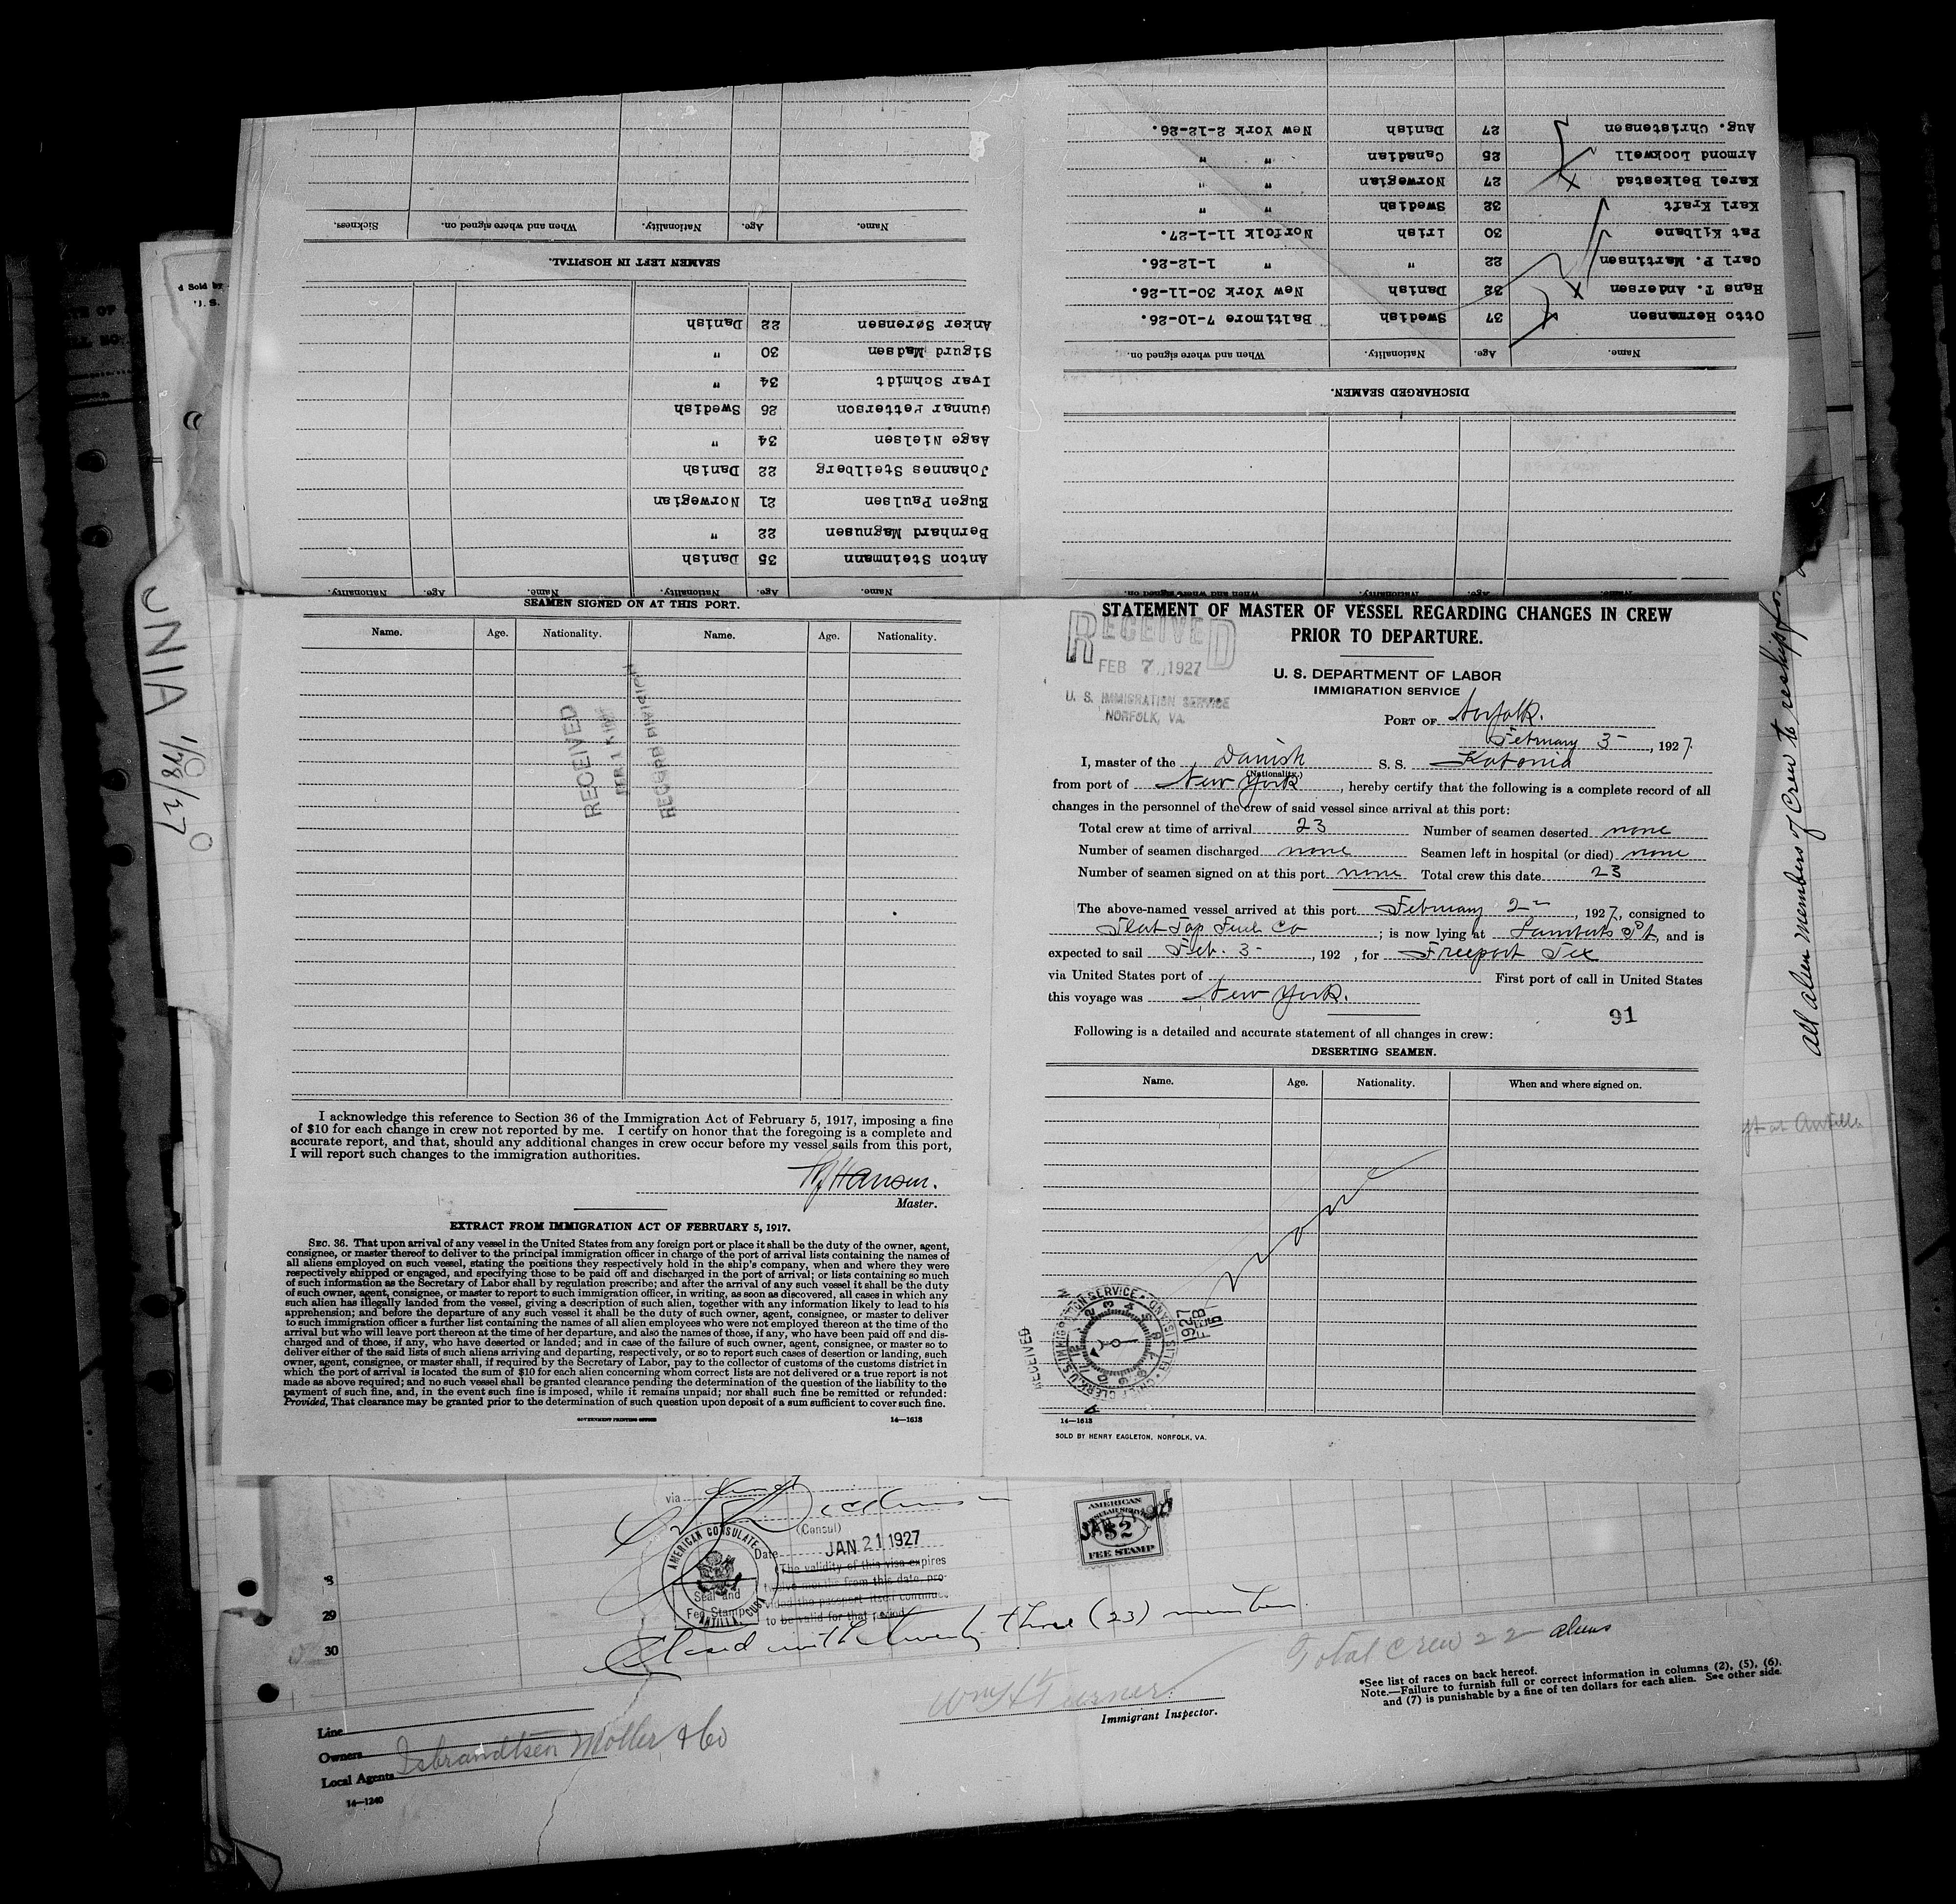 Aug. Christensen 27 Danish New York 2-12-26.
Armond Lockwell 25 Canadian " "
Karel Belkestad 27 Norwegian " "
Karl Kraft 32 Swedish " "
Pat Kilbane 30 Irish Norfolk 11-1-27.
Carl P. Martinsen 22 " " 1-12-26.
Hans T. Andersen 32 Danish New York 30-11-26.
Otto Hermansen 37 Swedish Baltimore 7-10-26.
Name. Age. Nationality. When and where signed on.
DISCHARGED SEAMEN.
Name. Age. Nationality. When and where signed on.
Name. Age. Nationality. When and where signed on. Sickness.
SEAMEN LEFT IN HOSPITAL.
Anker Sørensen 22 Danish
Sigurd Madsen 30 "
Ivar Schmidt 34 "
Gunnar Petterson 26 Swedish
Aage Nielsen 34 "
Johannes Steilberg 22 Danish
Eugen Paulsen 21 Norwegian
Bernhard Magnusen 22 "
Anton Steinmann 35 Danish
Name. Age. Nationality. Name. Age. Nationality.
d Sold by
U. S.
ONIA 1/18/27
SEAMEN SIGNED ON AT THIS PORT.
Name. Age. Nationality. Name. Age. Nationality.
RECEIVED
RECORD DIVISION
I acknowledge this reference to Section 36 of the Immigration Act of February 5, 1917, imposing a fine
of $10 for each change in crew not reported by me. I certify on honor that the foregoing is a complete and
accurate report, and that, should any additional changes in crew occur before my vessel sails from this port,
I will report such changes to the immigration authorities.
Hansen.
Master.
EXTRACT FROM IMMIGRATION ACT OF FEBRUARY 5, 1917.
SEC. 36. That upon arrival of any vessel in the United States from any foreign port or place it shall be the duty of the owner, agent,
consignee, or master thereof to deliver to the principal immigration officer in charge of the port of arrival lists containing the names of
all aliens employed on such vessel, stating the positions they respectively hold in the ship's company, when and where they were
respectively shipped or engaged, and specifying those to be paid off and discharged in the port of arrival; or lists containing so much
of such information as the Secretary of Labor shall by regulation prescribe; and after the arrival of any such vessel it shall be the duty
of such owner, agent, consignee, or master to report to such immigration officer, in writing, as soon as discovered, all cases in which any
such alien has illegally landed from the vessel, giving a description of such alien, together with any information likely to lead to his
apprehension; and before the departure of any such vessel it shall be the duty of such owner, agent, consignee, or master to deliver
to such immigration officer a further list containing the names of all alien employees who were not employed thereon at the time of the
arrival but who will leave port thereon at the time of her departure, and also the names of those, if any, who have been paid off and dis-
charged and of those, if any, who have deserted or landed; and in case of the failure of such owner, agent, consignee, or master so to
deliver either of the said lists of such aliens arriving and departing, respectively, or so to report such cases of desertion or landing, such
owner, agent, consignee, or master shall, if required by the Secretary of Labor, pay to the collector of customs of the customs district in
which the port of arrival is located the sum of $10 for each alien concerning whom correct lists are not delivered or a true report is not
made as above required; and no such vessel shall be granted clearance pending the determination of the question of the liability to the
payment of such fine, and, in the event such fine is imposed, while it remains unpaid; nor shall such fine be remitted or refunded:
Provided, That clearance may be granted prior to the determination of such question upon deposit of a sum sufficient to cover such fine.
GOVERNMENT PRINTING OFFICE 14—1618
STATEMENT OF MASTER OF VESSEL REGARDING CHANGES IN CREW
PRIOR TO DEPARTURE.
RECEIVED
FEB 7 1927
U. S. IMMIGRATION SERVICE
NORFOLK, VA.
U. S. DEPARTMENT OF LABOR
IMMIGRATION SERVICE
PORT OF Norfolk.
February 3, 1927
I, master of the Danish S. S. Katonia
(Nationality.)
from port of New York, hereby certify that the following is a complete record of all
changes in the personnel of the crew of said vessel since arrival at this port:
Total crew at time of arrival 23 Number of seamen deserted none
Number of seamen discharged none Seamen left in hospital (or died) none
Number of seamen signed on at this port none Total crew this date 23
The above-named vessel arrived at this port February 2, 1927, consigned to
Flat Top Fuel Co; is now lying at Lamberts Pt, and is
expected to sail Feb. 3, 192 , for Freeport Tex
via United States port of First port of call in United States
this voyage was New York.
91
Following is a detailed and accurate statement of all changes in crew:
DESERTING SEAMEN.
Name. Age. Nationality. When and where signed on.
none
RECEIVED
1927 FEB 5
14—1618
SOLD BY HENRY EAGLETON, NORFOLK, VA.
All alien members of crew to reship for
via
(Consul)
AMERICAN CONSULATE
ANTILLA, CUBA
Seal and
Fee Stamp
Date JAN 21 1927
(The validity of this visa expires
twelve months from this date, pro-
vided the passport itself continues
to be valid for that period
AMERICAN
CONSULAR SERVICE
$2
FEE STAMP
29
30
Closed with twenty three (23) members
Total crew 22 aliens
Wm H Turner
Immigrant Inspector.
*See list of races on back hereof.
Note.—Failure to furnish full or correct information in columns (2), (5), (6).
and (7) is punishable by a fine of ten dollars for each alien. See other side.
Line
Owners
Local Agents Isbrandtsen Moller & Co
14—1240